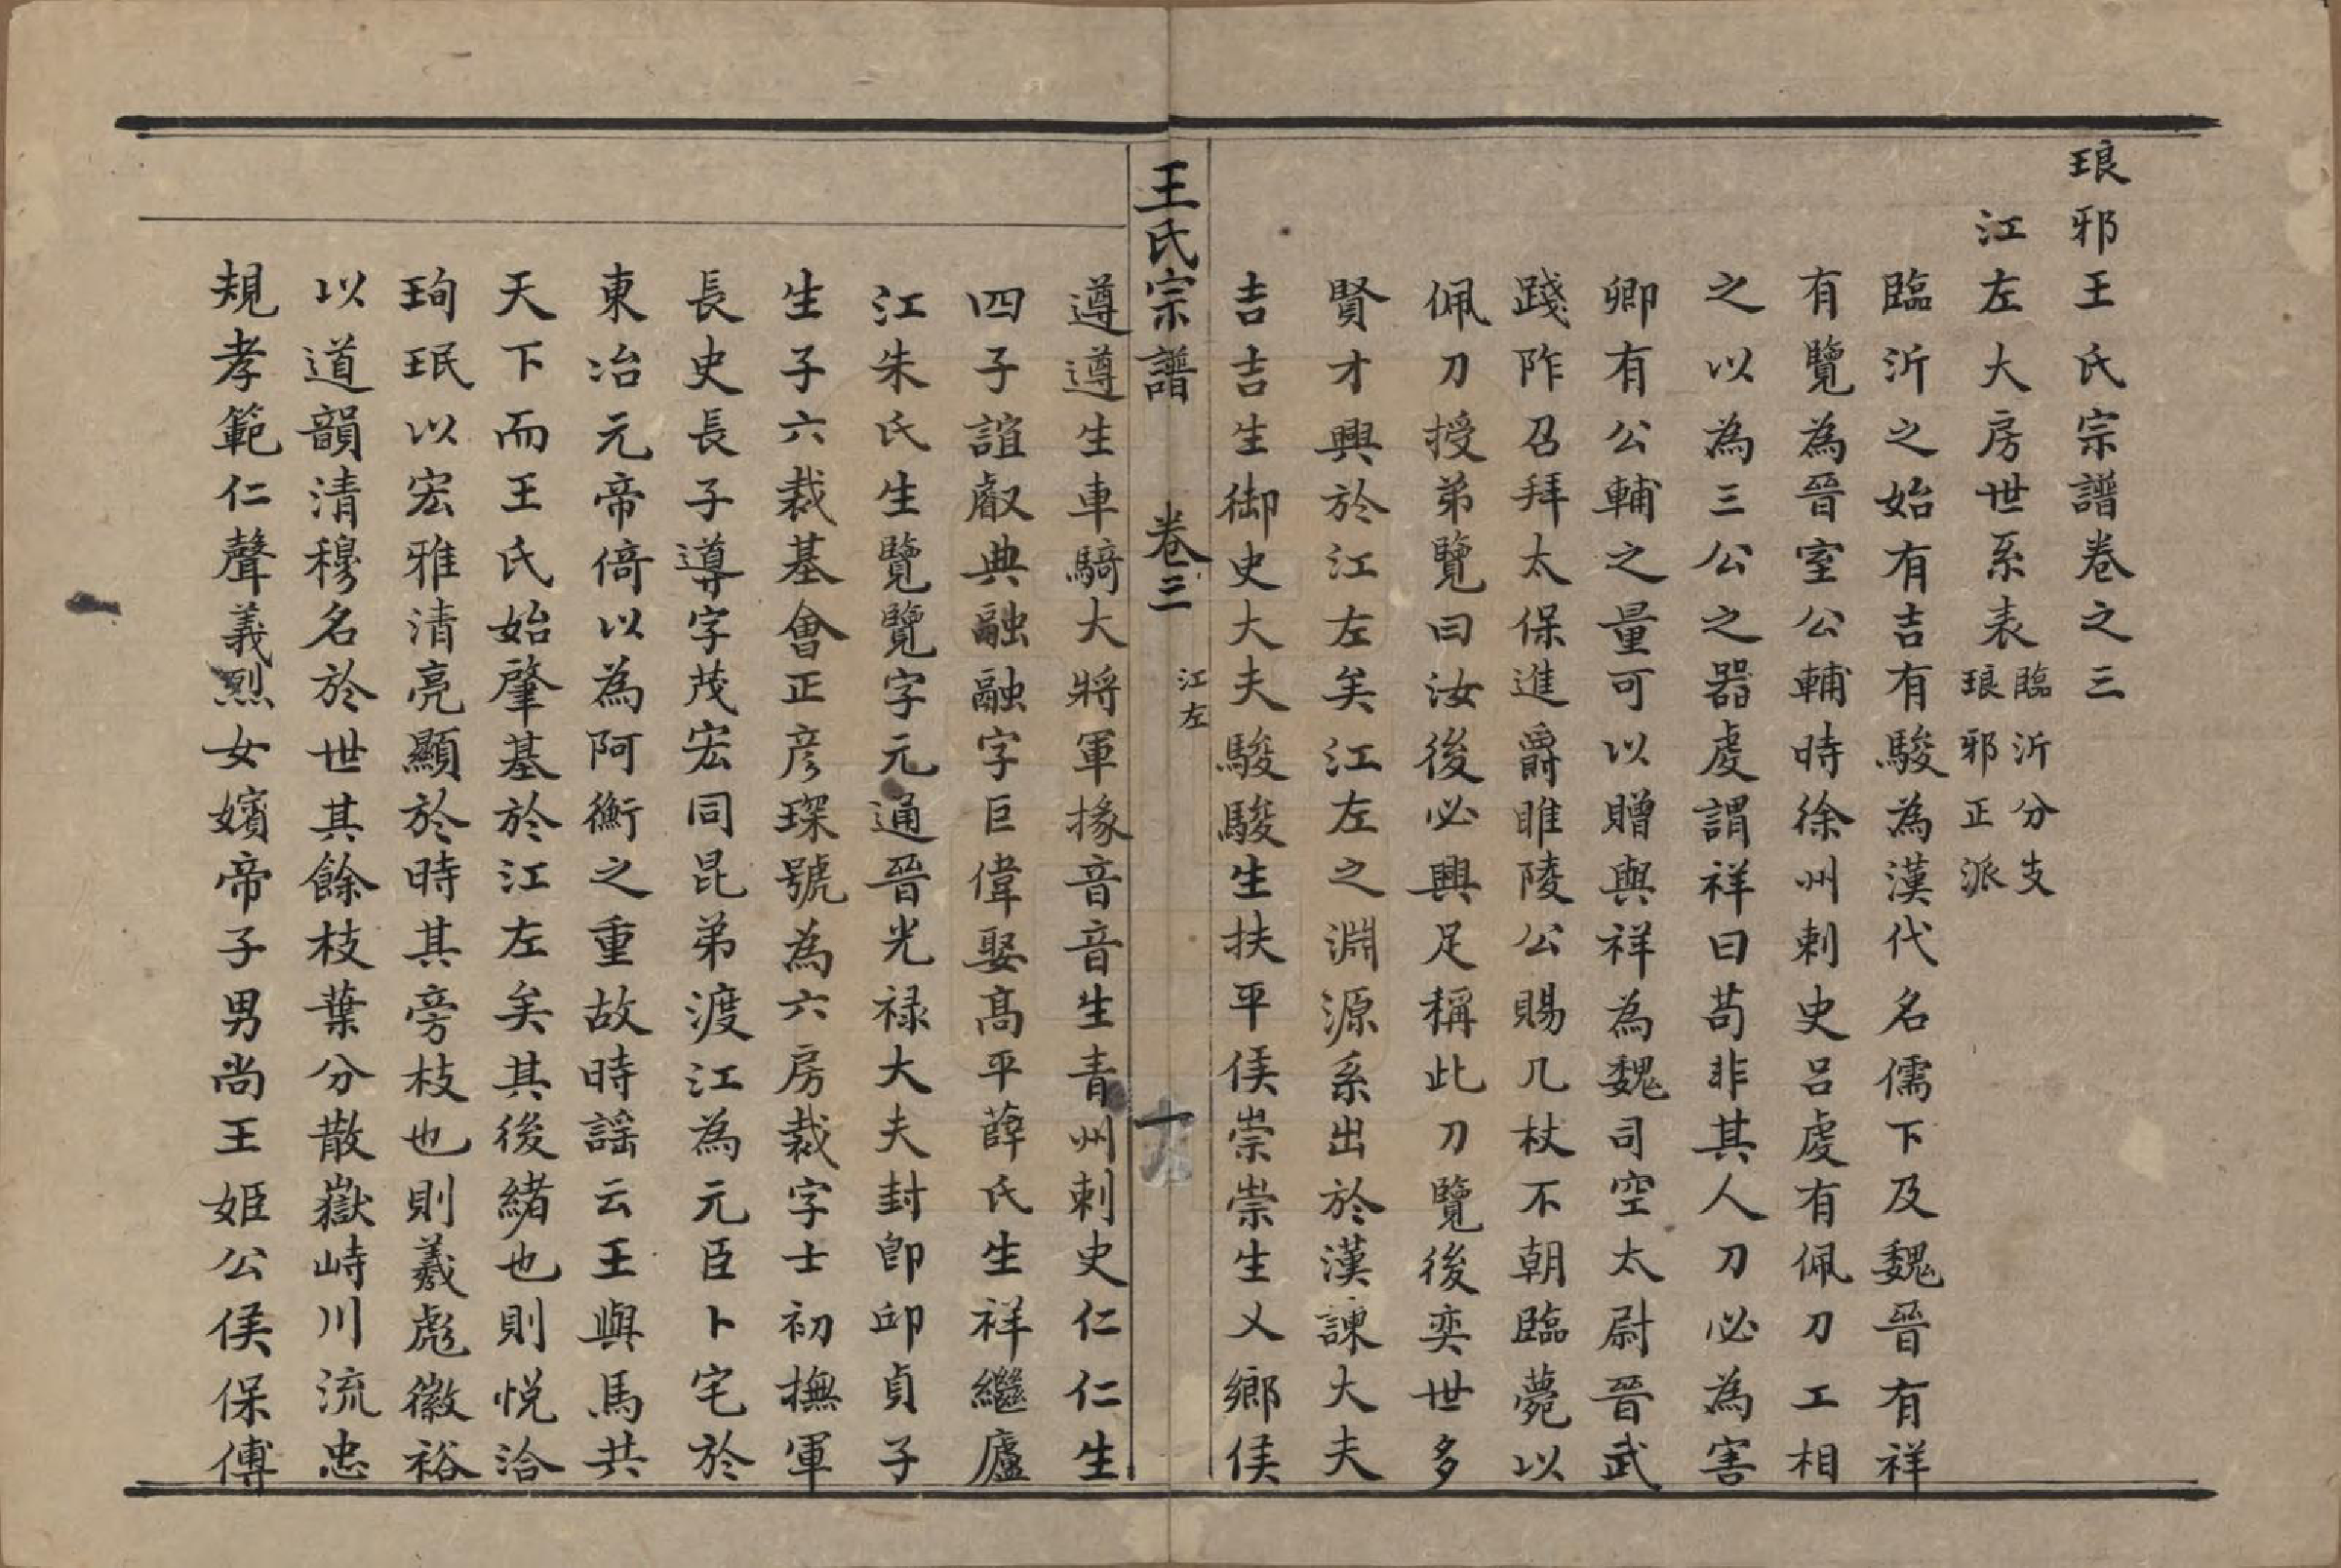 琅邪王氏宗譜卷之三
江左大房世系表
臨沂分支
琅邪正派
臨沂之始有吉有駿為漢代名儒下及魏晉有祥
有覽為晉室公輔時徐州刺史呂虔有佩刀工相
之以為三公之器虔謂祥曰苟非其人刀必為害
卿有公輔之量可以贈與祥為魏司空太尉晉武
踐阼召拜太保進爵睢陵公賜几杖不朝臨薨以
佩刀授弟覽曰汝後必興足稱此刀覽後奕世多
賢才興於江左矣江左之淵源系出於漢諫大夫
吉吉生御史大夫駿駿生扶平侯崇崇生乂鄉侯
王氏宗譜 卷三 江左
遵遵生車騎大將軍掾音音生青州刺史仁仁生
四子誼叡典融融字巨偉娶高平薛氏生祥繼廬
江朱氏生覽覽字元通晉光祿大夫封即邱貞子
生子六裁基會正彥琛號為六房裁字士初撫軍
長史長子導字茂宏同昆弟渡江為元臣卜宅於
東冶元帝倚以為阿衡之重故時謠云王與馬共
天下而王氏始肇基於江左矣其後緒也則悅洽
珣珉以宏雅清亮顯於時其旁枝也則羲彪徽裕
以道韻清穆名於世其餘枝葉分散嶽峙川流忠
規孝範仁聲義烈女嬪帝子男尚王姬公侯保傅